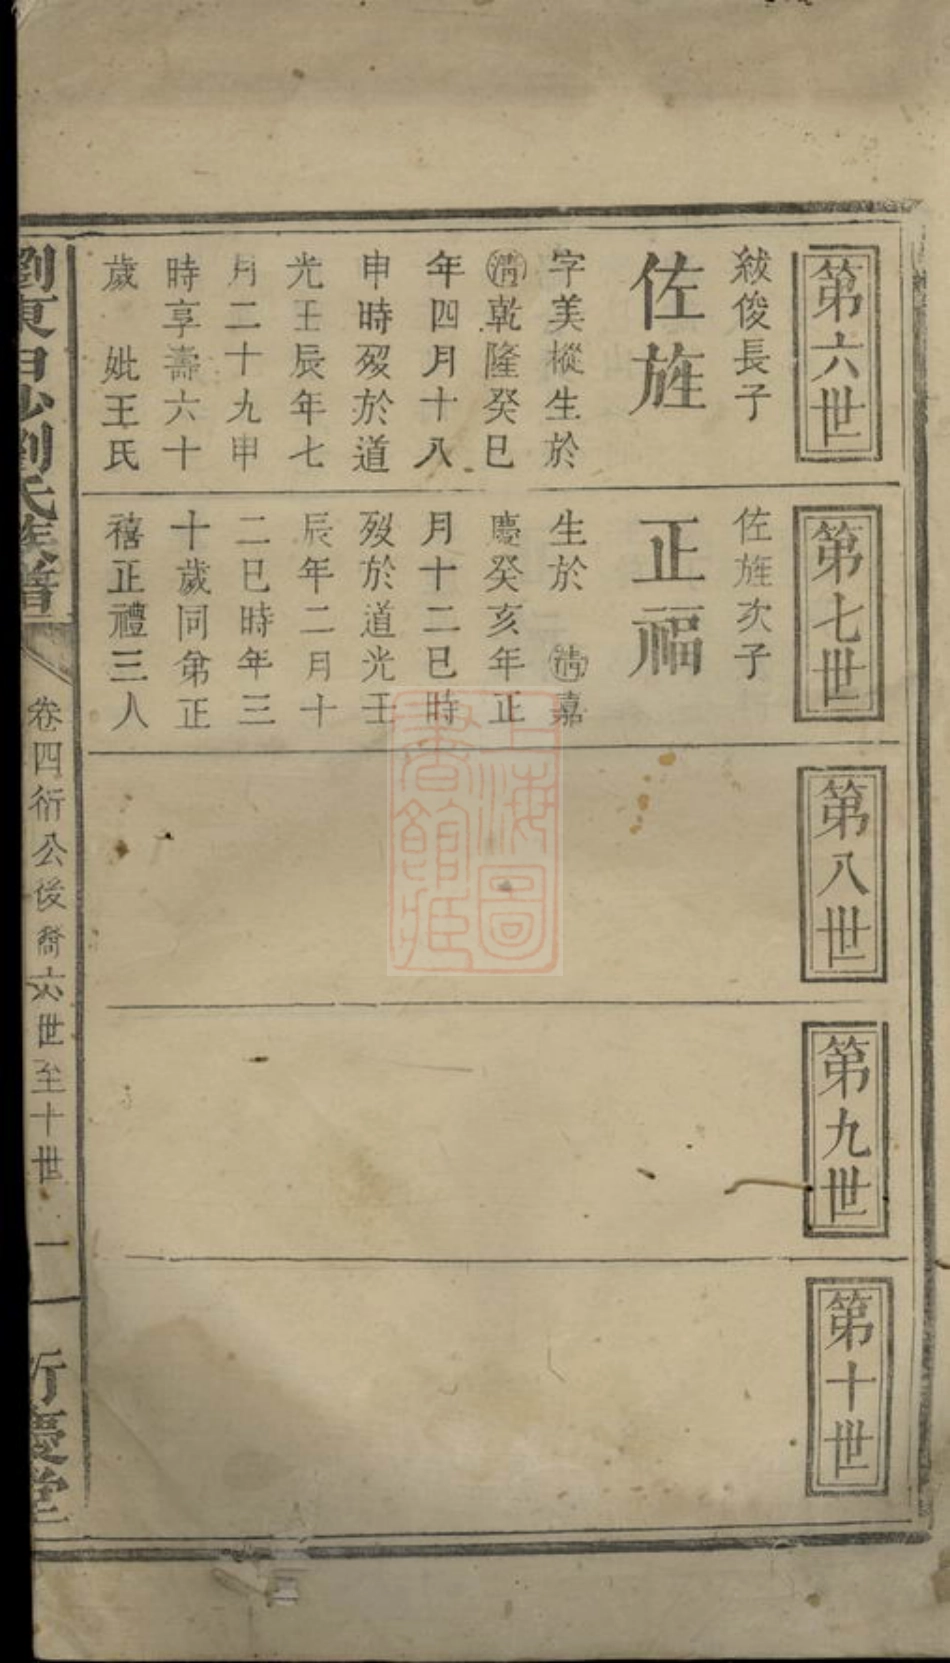 第六世
紱俊長子
佐旌
字美樅生於
清乾隆癸巳
年四月十八
申時歿於道
光壬辰年七
月二十九申
時享壽六十
歲 妣王氏
第七世
佐旌次子
正福
生於 清嘉
慶癸亥年正
月十二巳時
歿於道光壬
辰年二月十
二巳時年三
十歲同弟正
禧正禮三人
第八世
第九世
第十世
劉氏族譜
卷四衍公後裔六世至十世 一
慶堂
上海圖
書館藏